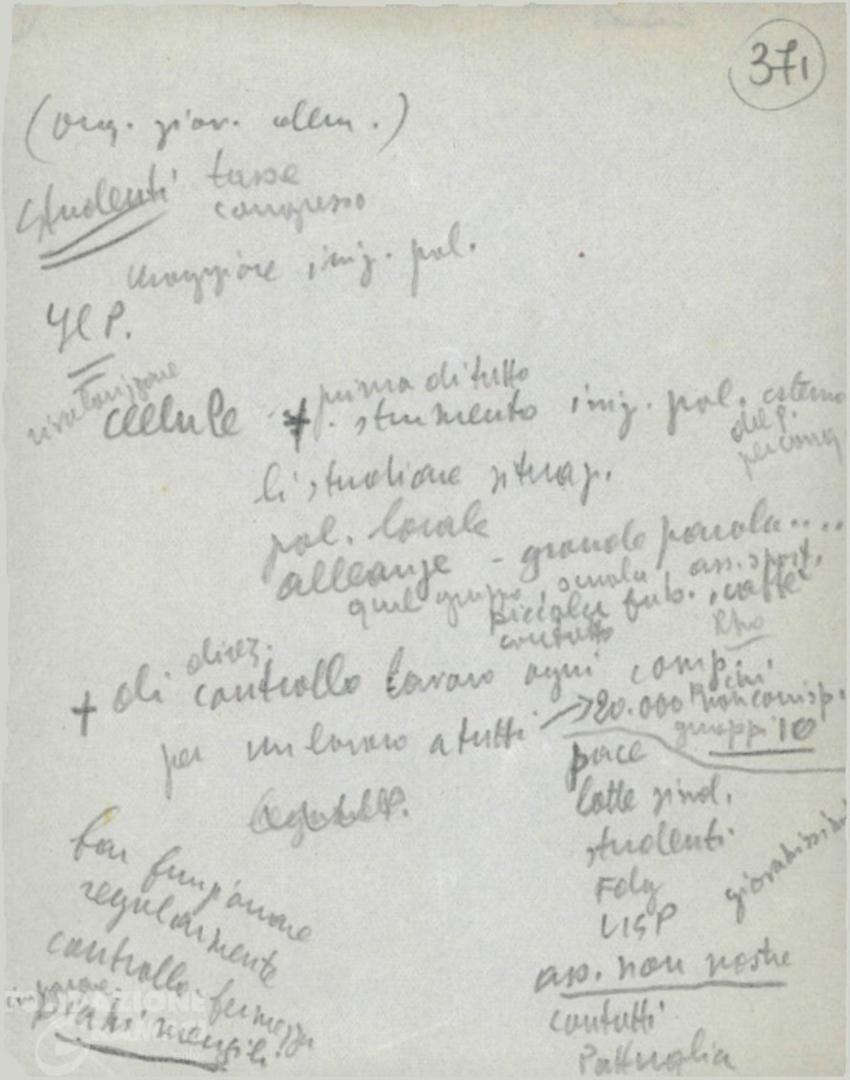 371
(org. giov. dem.)
Studenti tasse
congresso
maggiore iniz. pol.
P.
cellule + prima di tutto
p. strumento iniz. pol. esterno
del p.
li studiare situaz.
pol. locale
alleanze - grande parola....
quel gruppo, scuola, ass. sport,
piccola fabb., caffè
contatto Rho
+ di direz.
controllo lavoro ogni comp.
per un lavoro a tutti → 20.000
gruppi 10
pace
lotte sind.
studenti
giovanissimi
Fdg
UISP
ass. non nostre
contatti
Pattuglia
far funzionare
regolarmente
controllo - fermezza
imparare
piani mensili
FONDAZIONE